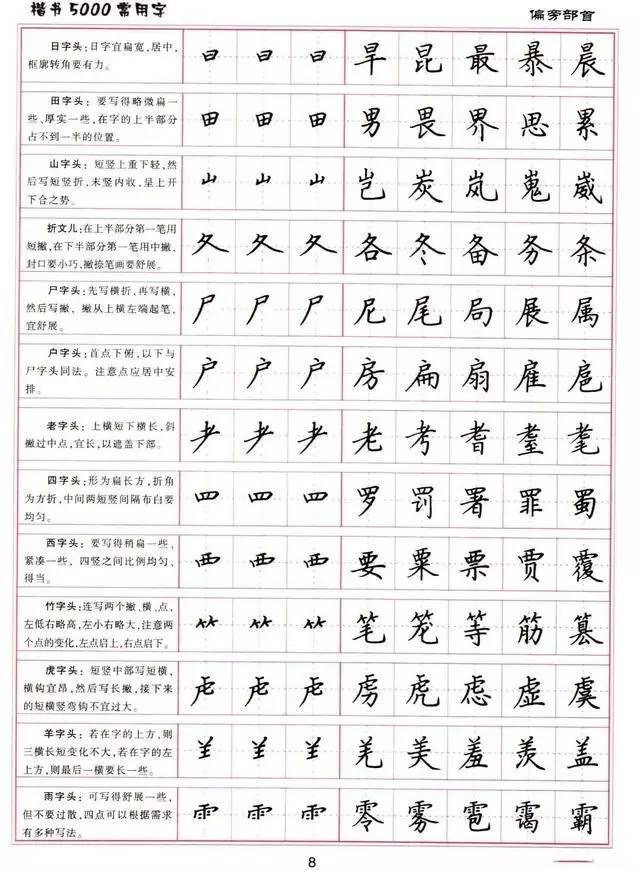 楷书5000常用字
偏旁部首
日字头：日字宜扁宽,居中,
框廓转角要有力。
日 日 日 旱 昆 最 暴 晨
田字头：要写得略微扁一
些,厚实一些,在字的上半部分
占不到一半的位置。
田 田 田 男 畏 界 思 累
山字头：短竖上重下轻,然
后写短竖折,末竖内收,呈上开
下合之势。
山 山 山 岂 炭 岚 嵬 崴
折文儿：在上半部分第一笔用
短撇,在下半部分第一笔用中撇,
封口要小巧,撇捺笔画要舒展。
夂 夂 夂 各 冬 备 务 条
尸字头：先写横折,再写横,
然后写撇，撇从上横左端起笔,
宜舒展。
尸 尸 尸 尼 尾 局 展 属
户字头：首点下俯,以下与
尸字头同法。注意点应居中安
排。
户 户 户 房 扁 扇 雇 扈
老字头：上横短下横长,斜
撇过中点,宜长,以遮盖下部。
耂 耂 耂 老 考 耆 耋 耄
四字头：形为扁长方,折角
为方折,中间两短竖间隔布白要
均匀。
罒 罒 罒 罗 罚 署 罪 蜀
西字头：要写得稍扁一些、
紧凑一些，四竖之间比例均匀、
得当。
覀 覀 覀 要 粟 票 贾 覆
竹字头：连写两个撇、横、点,
左低右略高,左小右略大,注意两
个点的变化,左点启上,右点启下。
⺮ ⺮ ⺮ 笔 笼 等 筋 篡
虎字头：短竖中部写短横,
横钩宜昂,然后写长撇,接下来
的短横竖弯钩不宜过大。
虍 虍 虍 虏 虎 虑 虚 虞
羊字头：若在字的上方,则
三横长短变化不大,若在字的左
上方,则最后一横要长一些。
⺶ ⺶ ⺶ 羌 美 羞 羡 盖
雨字头：可写得舒展一些,
但不要过散,四点可以根据需求
有多种写法。
⻗ ⻗ ⻗ 零 雾 雹 霭 霸
8